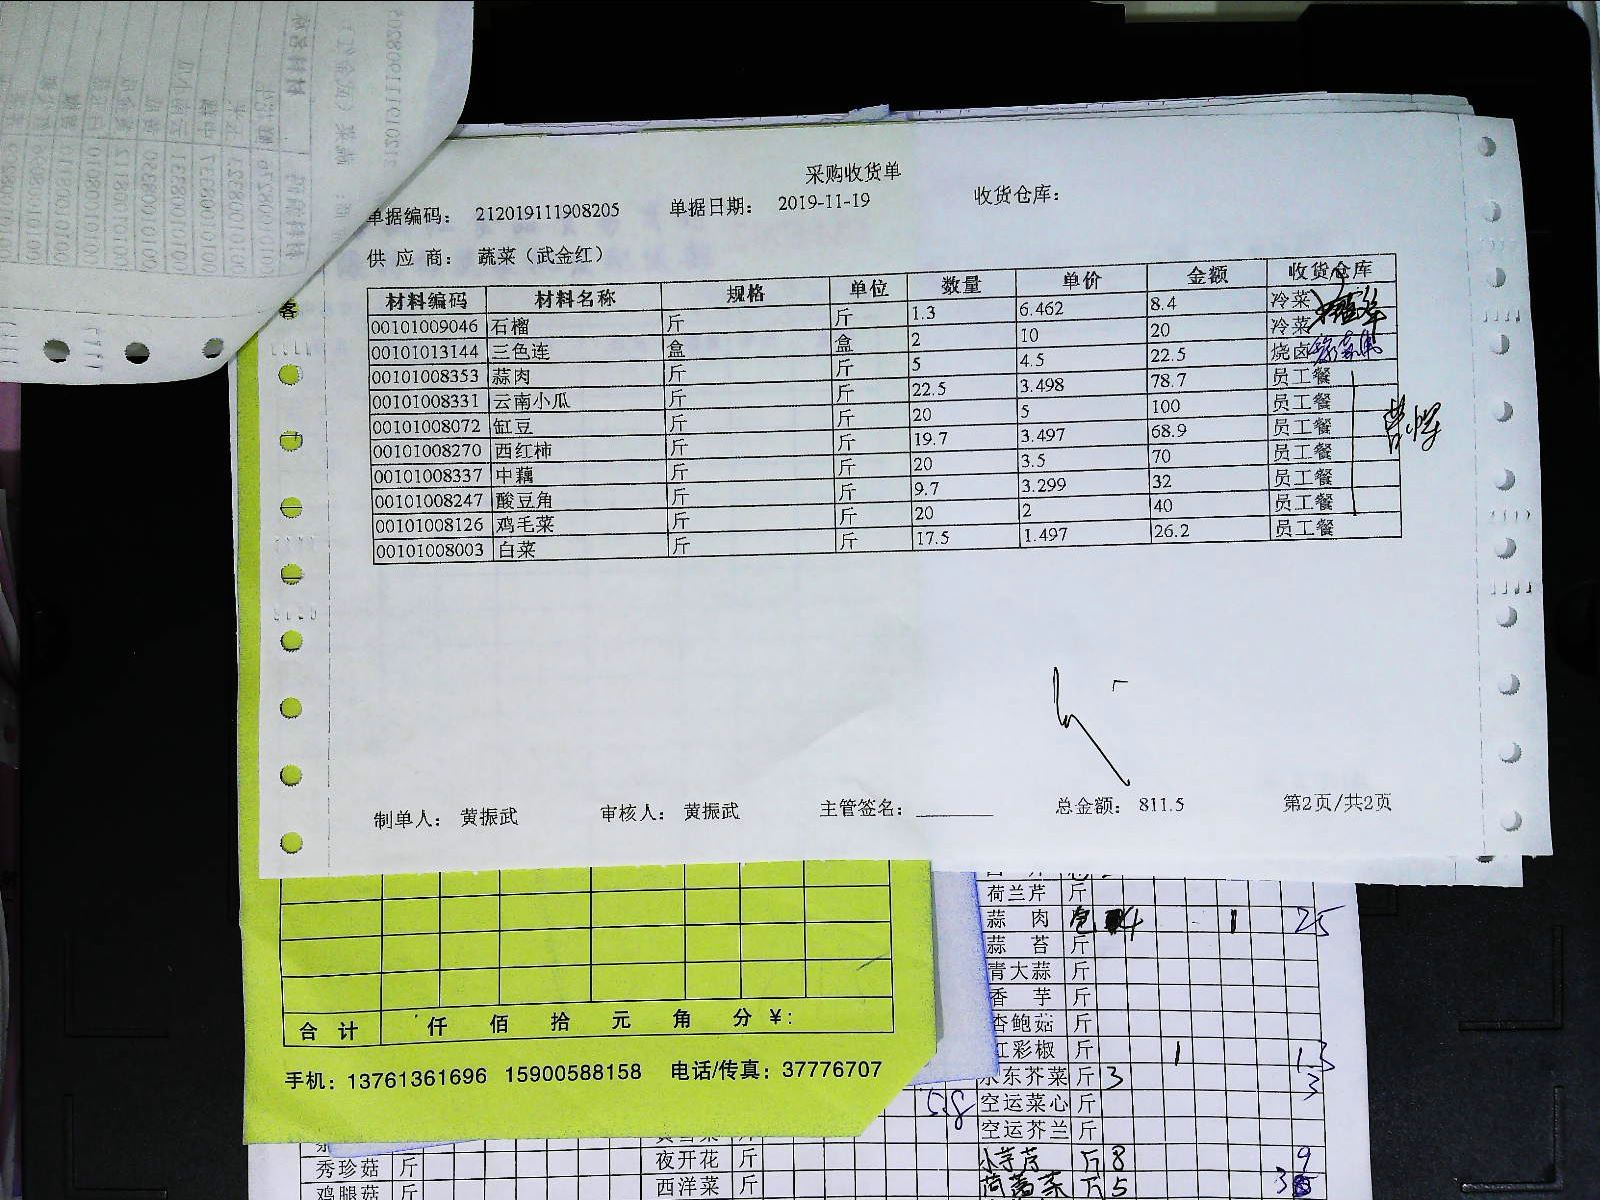 采购收货单
单据编码: 212019111908205 单据日期: 2019-11-19 收货仓库:
供 应 商: 蔬菜（武金红）
材料编码 材料名称 规格 单位 数量 单价 金额 收货仓库
00101009046 石榴 斤 斤 1.3 6.462 8.4 冷菜
00101013144 三色连 盒 盒 2 10 20 冷菜
00101008353 蒜肉 斤 斤 5 4.5 22.5 烧卤
00101008331 云南小瓜 斤 斤 22.5 3.498 78.7 员工餐
00101008072 缸豆 斤 斤 20 5 100 员工餐
00101008270 西红柿 斤 斤 19.7 3.497 68.9 员工餐
00101008337 中藕 斤 斤 20 3.5 70 员工餐
00101008247 酸豆角 斤 斤 9.7 3.299 32 员工餐
00101008126 鸡毛菜 斤 斤 20 2 40 员工餐
00101008003 白菜 斤 斤 17.5 1.497 26.2 员工餐
制单人: 黄振武 审核人: 黄振武 主管签名: 总金额: 811.5 第2页/共2页
客
合 计 仟 佰 拾 元 角 分 ¥:
手机: 13761361696 15900588158 电话/传真: 37776707
荷兰芹 斤
蒜 肉 包 4 1 25
蒜 苔 斤
青大蒜 斤
香 芋 斤
杏鲍菇 斤
红彩椒 斤 1 1.3
水东芥菜 斤 3 3
5.8 空运菜心 斤
空运芥兰 斤
秀珍菇 斤 夜开花 斤 小芋艿 斤 8 9
鸡腿菇 斤 西洋菜 斤 斤 5